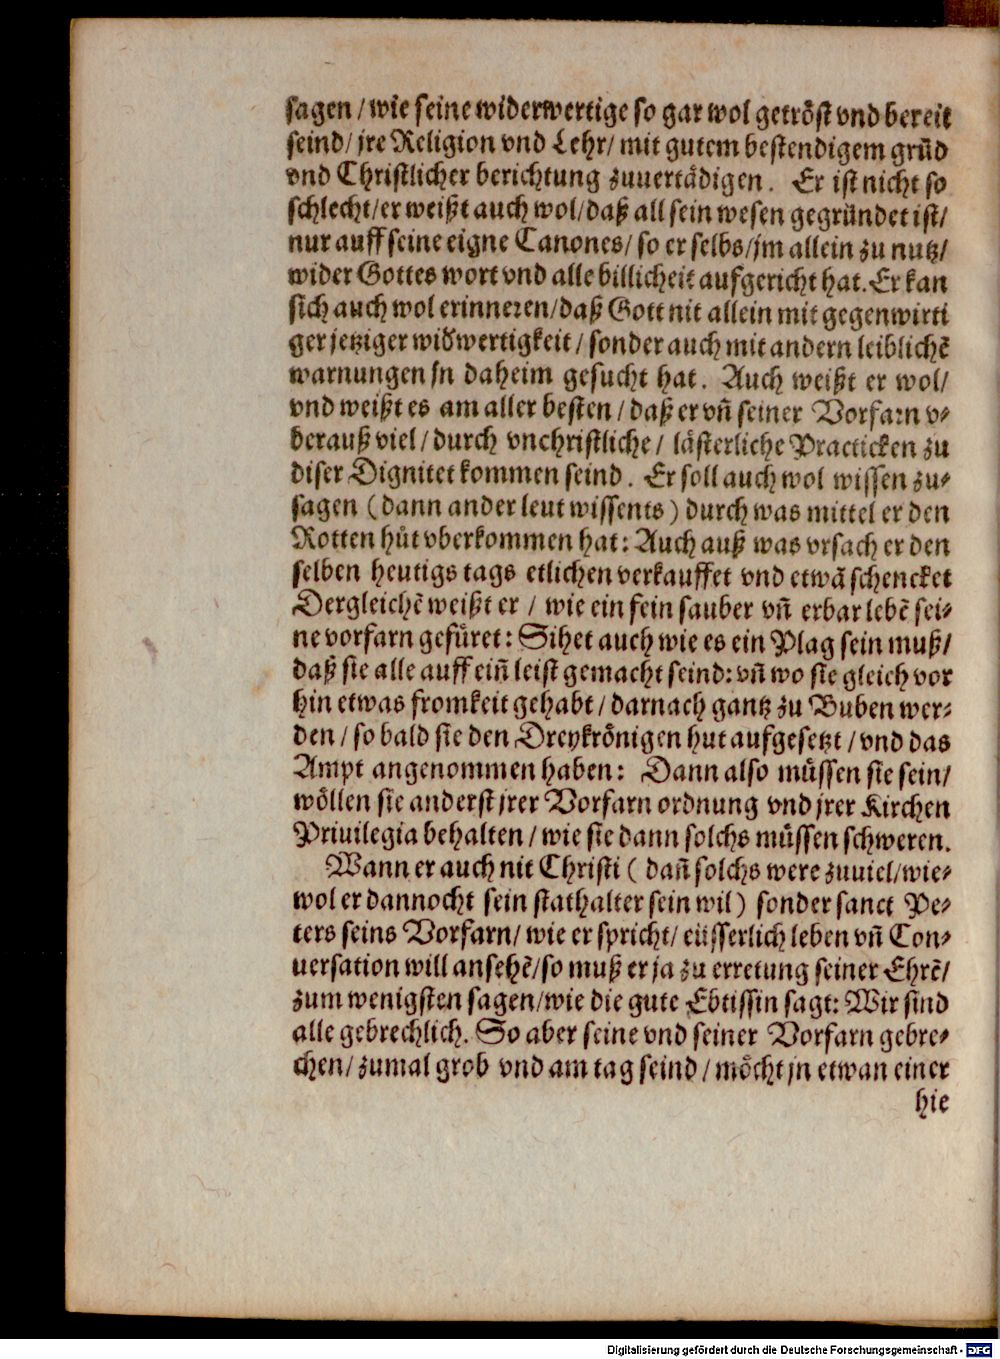 sagen / wie seine widerwertige so gar wol getröst vnd bereit
seind / jre Religion vnd Lehr / mit gutem bestendigem grūd
vnd Christlicher berichtung zuuertädigen. Er ist nicht so
schlecht / er weißt auch wol / daß all sein wesen gegründet ist /
nur auff seine eigne Canones / so er selbs / jm allein zu nutz /
wider Gottes wort vnd alle billicheit aufgericht hat. Er kan
sich auch wol erinneren / daß Gott nit allein mit gegenwirti
ger jetziger widwertigkeit / sonder auch mit andern leiblichē
warnungen jn daheim gesucht hat. Auch weißt er wol /
vnd weißt es am aller besten / daß er vñ seiner Vorfarn v-
berauß viel / durch vnchristliche / lästerliche Practicken zu
diser Dignitet kommen seind. Er soll auch wol wissen zu-
sagen (dann ander leut wissents) durch was mittel er den
Rotten hůt vberkommen hat: Auch auß was vrsach er den
selben heutigs tags etlichen verkauffet vnd etwā schencket
Dergleichē weißt er / wie ein fein sauber vñ erbar lebē sei-
ne vorfarn gefüret: Sihet auch wie es ein Plag sein muß /
daß sie alle auff eiñ leist gemacht seind: vñ wo sie gleich vor
hin etwas fromkeit gehabt / darnach gantz zu Buben wer-
den / so bald sie den Dreykrönigen hut aufgesetzt / vnd das
Ampt angenommen haben: Dann also müssen sie sein /
wöllen sie anderst jrer Vorfarn ordnung vnd jrer Kirchen
Priuilegia behalten / wie sie dann solchs müssen schweren.
Wann er auch nit Christi (dañ solchs were zuuiel / wie-
wol er dannocht sein stathalter sein wil) sonder sanct Pe-
ters seins Vorfarn / wie er spricht / eüsserlich leben vñ Con-
uersation will ansehē / so muß er ja zu erretung seiner Ehrē /
zum wenigsten sagen / wie die gute Ebtissin sagt: Wir sind
alle gebrechlich. So aber seine vnd seiner Vorfarn gebre-
chen / zumal grob vnd am tag seind / möcht jn etwan einer
hie
Digitalisierung gefördert durch die Deutsche Forschungsgemeinschaft - DFG